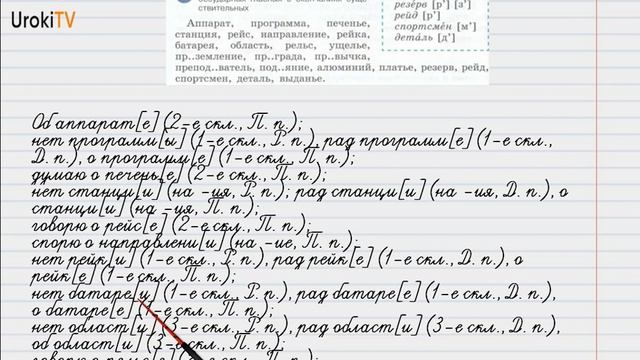 UrokiTV
безударная гласная в окончании суще-
ствительных
Аппарат, программа, печенье,
станция, рейс, направление, рейка,
батарея, область, рельс, ущелье,
пр..земление, пр..града, пр..вычка,
препод..ватель, под..яние, алюминий, платье, резерв, рейд,
спортсмен, деталь, выданье.
резéрв [р’] [з’]
рейд [р’]
спортсмéн [м’]
детáль [д’]
Об аппарат[е] (2-е скл., П. п.);
нет программ[ы] (1-е скл., Р. п.), рад программ[е] (1-е скл.,
Д. п.), о программ[е] (1-е скл., П. п.);
думаю о печень[е] (2-е скл., П. п.);
нет станци[и] (на -ия, Р. п.); рад станци[и] (на -ия, Д. п.), о
станци[и] (на -ия, П. п.);
говорю о рейс[е] (2-е скл., П. п.);
спорю о направлени[и] (на -ие, П. п.);
нет рейк[и] (1-е скл., Р. п.), рад рейк[е] (1-е скл., Д. п.), о
рейк[е] (1-е скл., П. п.);
нет батаре[и] (1-е скл., Р. п.), рад батаре[е] (1-е скл., Д. п.),
о батаре[е] (1-е скл., П. п.);
нет област[и] (3-е скл., Р. п.), рад област[и] (3-е скл., Д. п.),
об област[и] (3-е скл., П. п.);